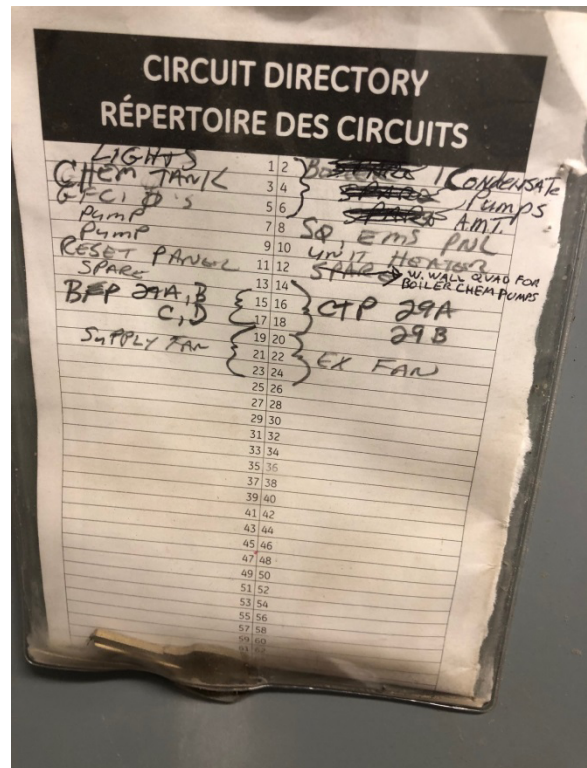 CIRCUIT DIRECTORY
RÉPERTOIRE DES CIRCUITS
LIGHTS 1 2 CONDENSATE
CHEM TANK 3 4 PUMPS
GFCI 5 6 AMT.
PUMP 7 8 EMS PNL
PUMP 9 10 UNIT HEATER
RESET PANEL 11 12 SPARE → W. WALL QUAD FOR
BOILER CHEM PUMPS
SPARE 13 14
BFP 29A, B 15 16 CTP 29A
C, D 17 18 29B
SUPPLY FAN 19 20
21 22 EX FAN
23 24
25 26
27 28
29 30
31 32
33 34
35 36
37 38
39 40
41 42
43 44
45 46
47 48
49 50
51 52
53 54
55 56
57 58
59 60